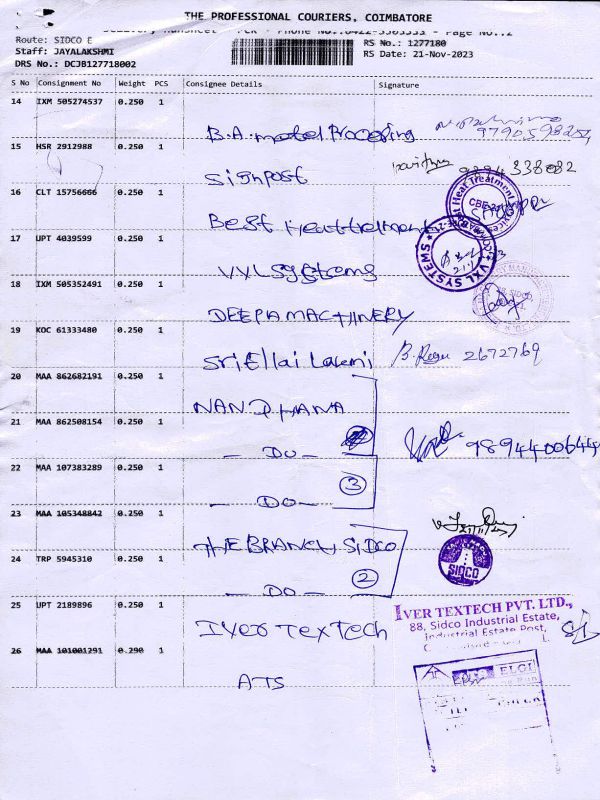 THE PROFESSIONAL COURIERS, COIMBATORE
Route: SIDCO E
Staff: JAYALAKSHMI
DRS No.: DCJB127718002
RS No.: 1277180
RS Date: 21-Nov-2023
S No Consignment No Weight PCS Consignee Details Signature
14 IXM 505274537 0.250 1
B.A. 9790598254
15 HSR 2912988 0.250 1
Signpost 338082
16 CLT 15756666 0.250 1
Best Heat Treatment
17 UPT 4039599 0.250 1
VXL Systems
VXL SYSTEMS
18 IXM 505352491 0.250 1
DEEPA MACHINERY
19 KOC 61333480 0.250 1
Sri Ellai Laxmi B. 2672769
20 MAA 862682191 0.250 1
NANDHANA
21 MAA 862508154 0.250 1
— DO — 9894400644
22 MAA 107383289 0.250 1
— DO — 3
23 MAA 105348842 0.250 1
THE BRANCH, SIDCO
SIDCO
24 TRP 5945310 0.250 1
— DO — 2
25 UPT 2189896 0.250 1
Iver TexTech
IVER TEXTECH PVT. LTD.,
88, Sidco Industrial Estate,
Industrial Estate Post,
26 MAA 101001291 0.290 1
ATS
ELGI